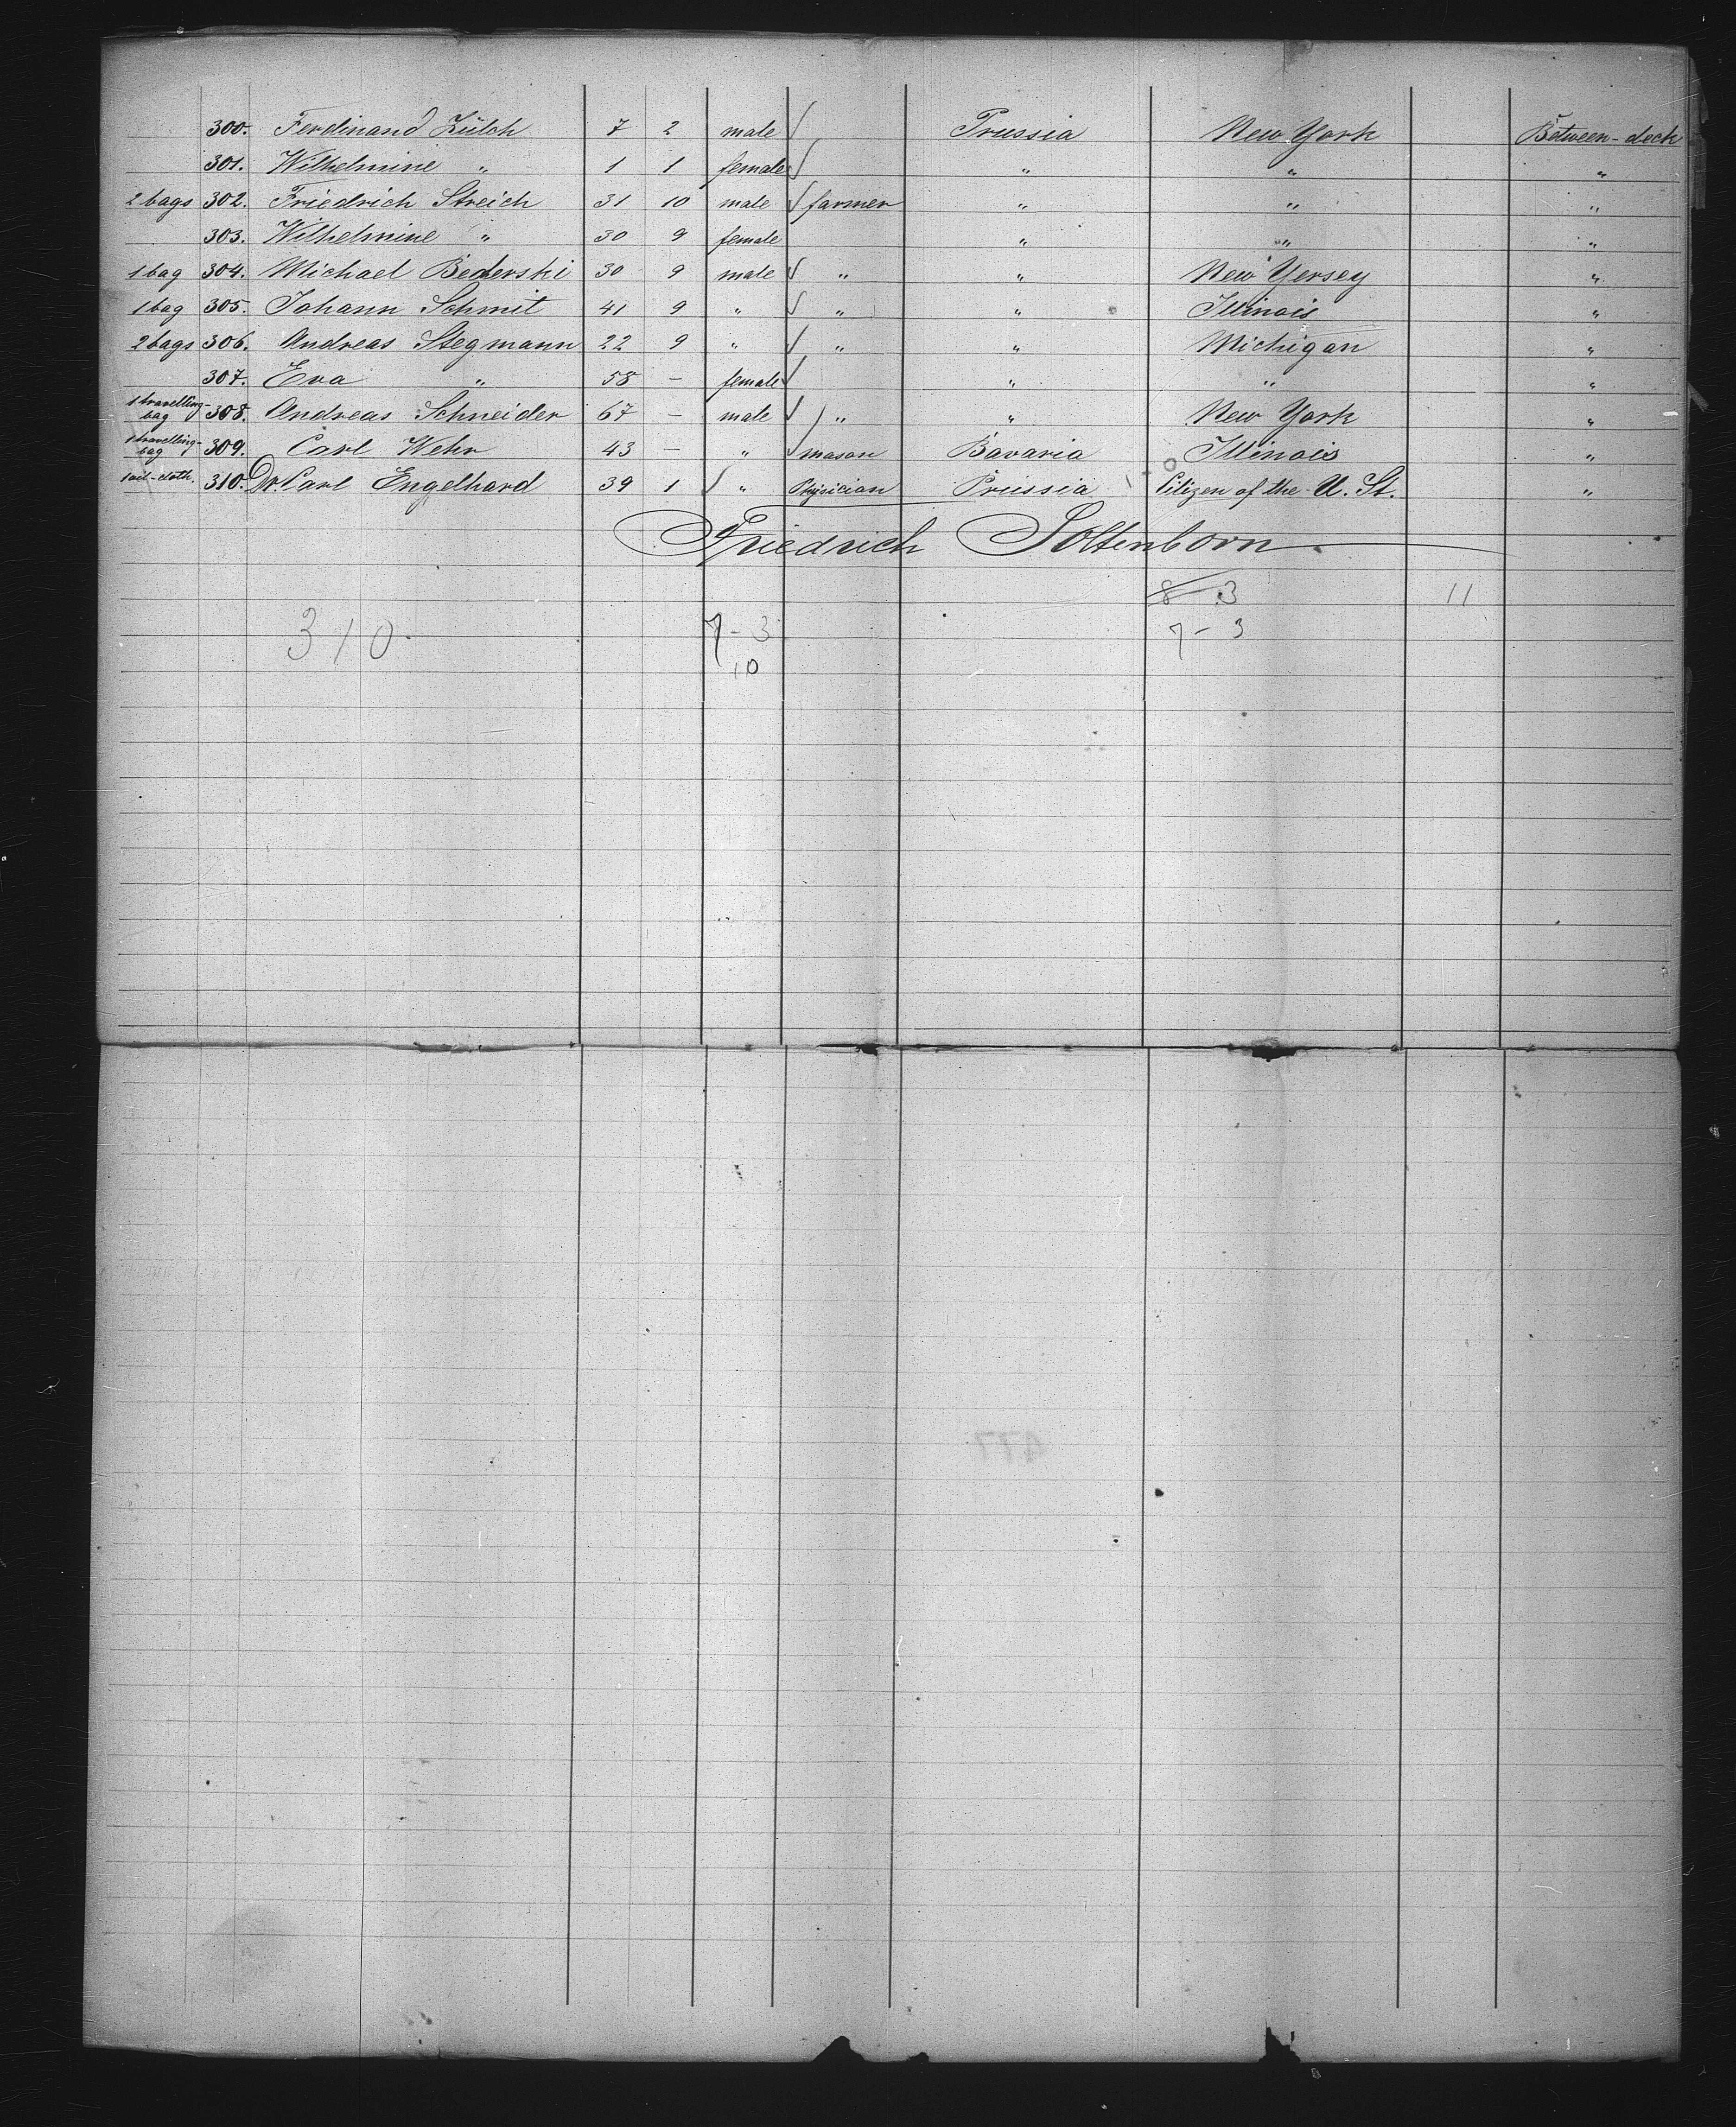 300. Ferdinand Zülch 7 2 male Prussia New York Between-deck
301. Wilhelmine " 1 1 female " " "
2 bags 302. Friedrich Streich 31 10 male farmer " " "
303. Wilhelmine " 30 9 female " " "
1 bag 304. Michael Bederski 30 9 male " " New Yersey "
1 bag 305. Johann Schmit 41 9 " " " Illinois "
2 bags 306. Andreas Stegmann 22 9 " " " Michigan "
307. Eva " 58 - female " " "
1 travelling-bag 308. Andreas Schneider 67 - male " " New York "
1 travelling-bag 309. Carl Wehr 43 - " mason Bavaria Illinois "
1 oil-cloth. 310. Dr. Carl Engelhard 39 1 " Physician Prussia Citizen of the U. St. "
Friedrich Soltenborn
8 3 11
310 7-3 7-3
10